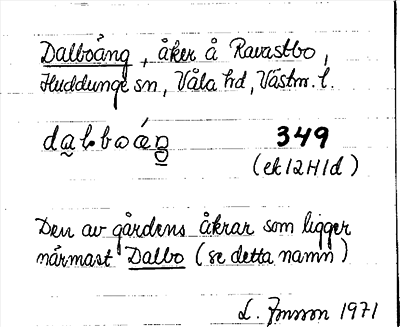 Dalboäng, åker å Ravastbo,
Huddunge sn, Våla hd, Västm. l.
dalboäŋ 349
(ek 12H1d)
Den av gårdens åkrar som ligger
närmast Dalbo (se detta namn)
L. Jonsson 1971